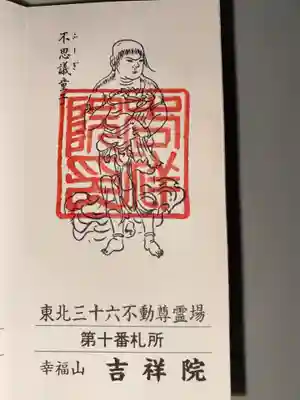 不思議童子
ふしぎ
東北三十六不動尊霊場
第十番札所
幸福山 吉祥院